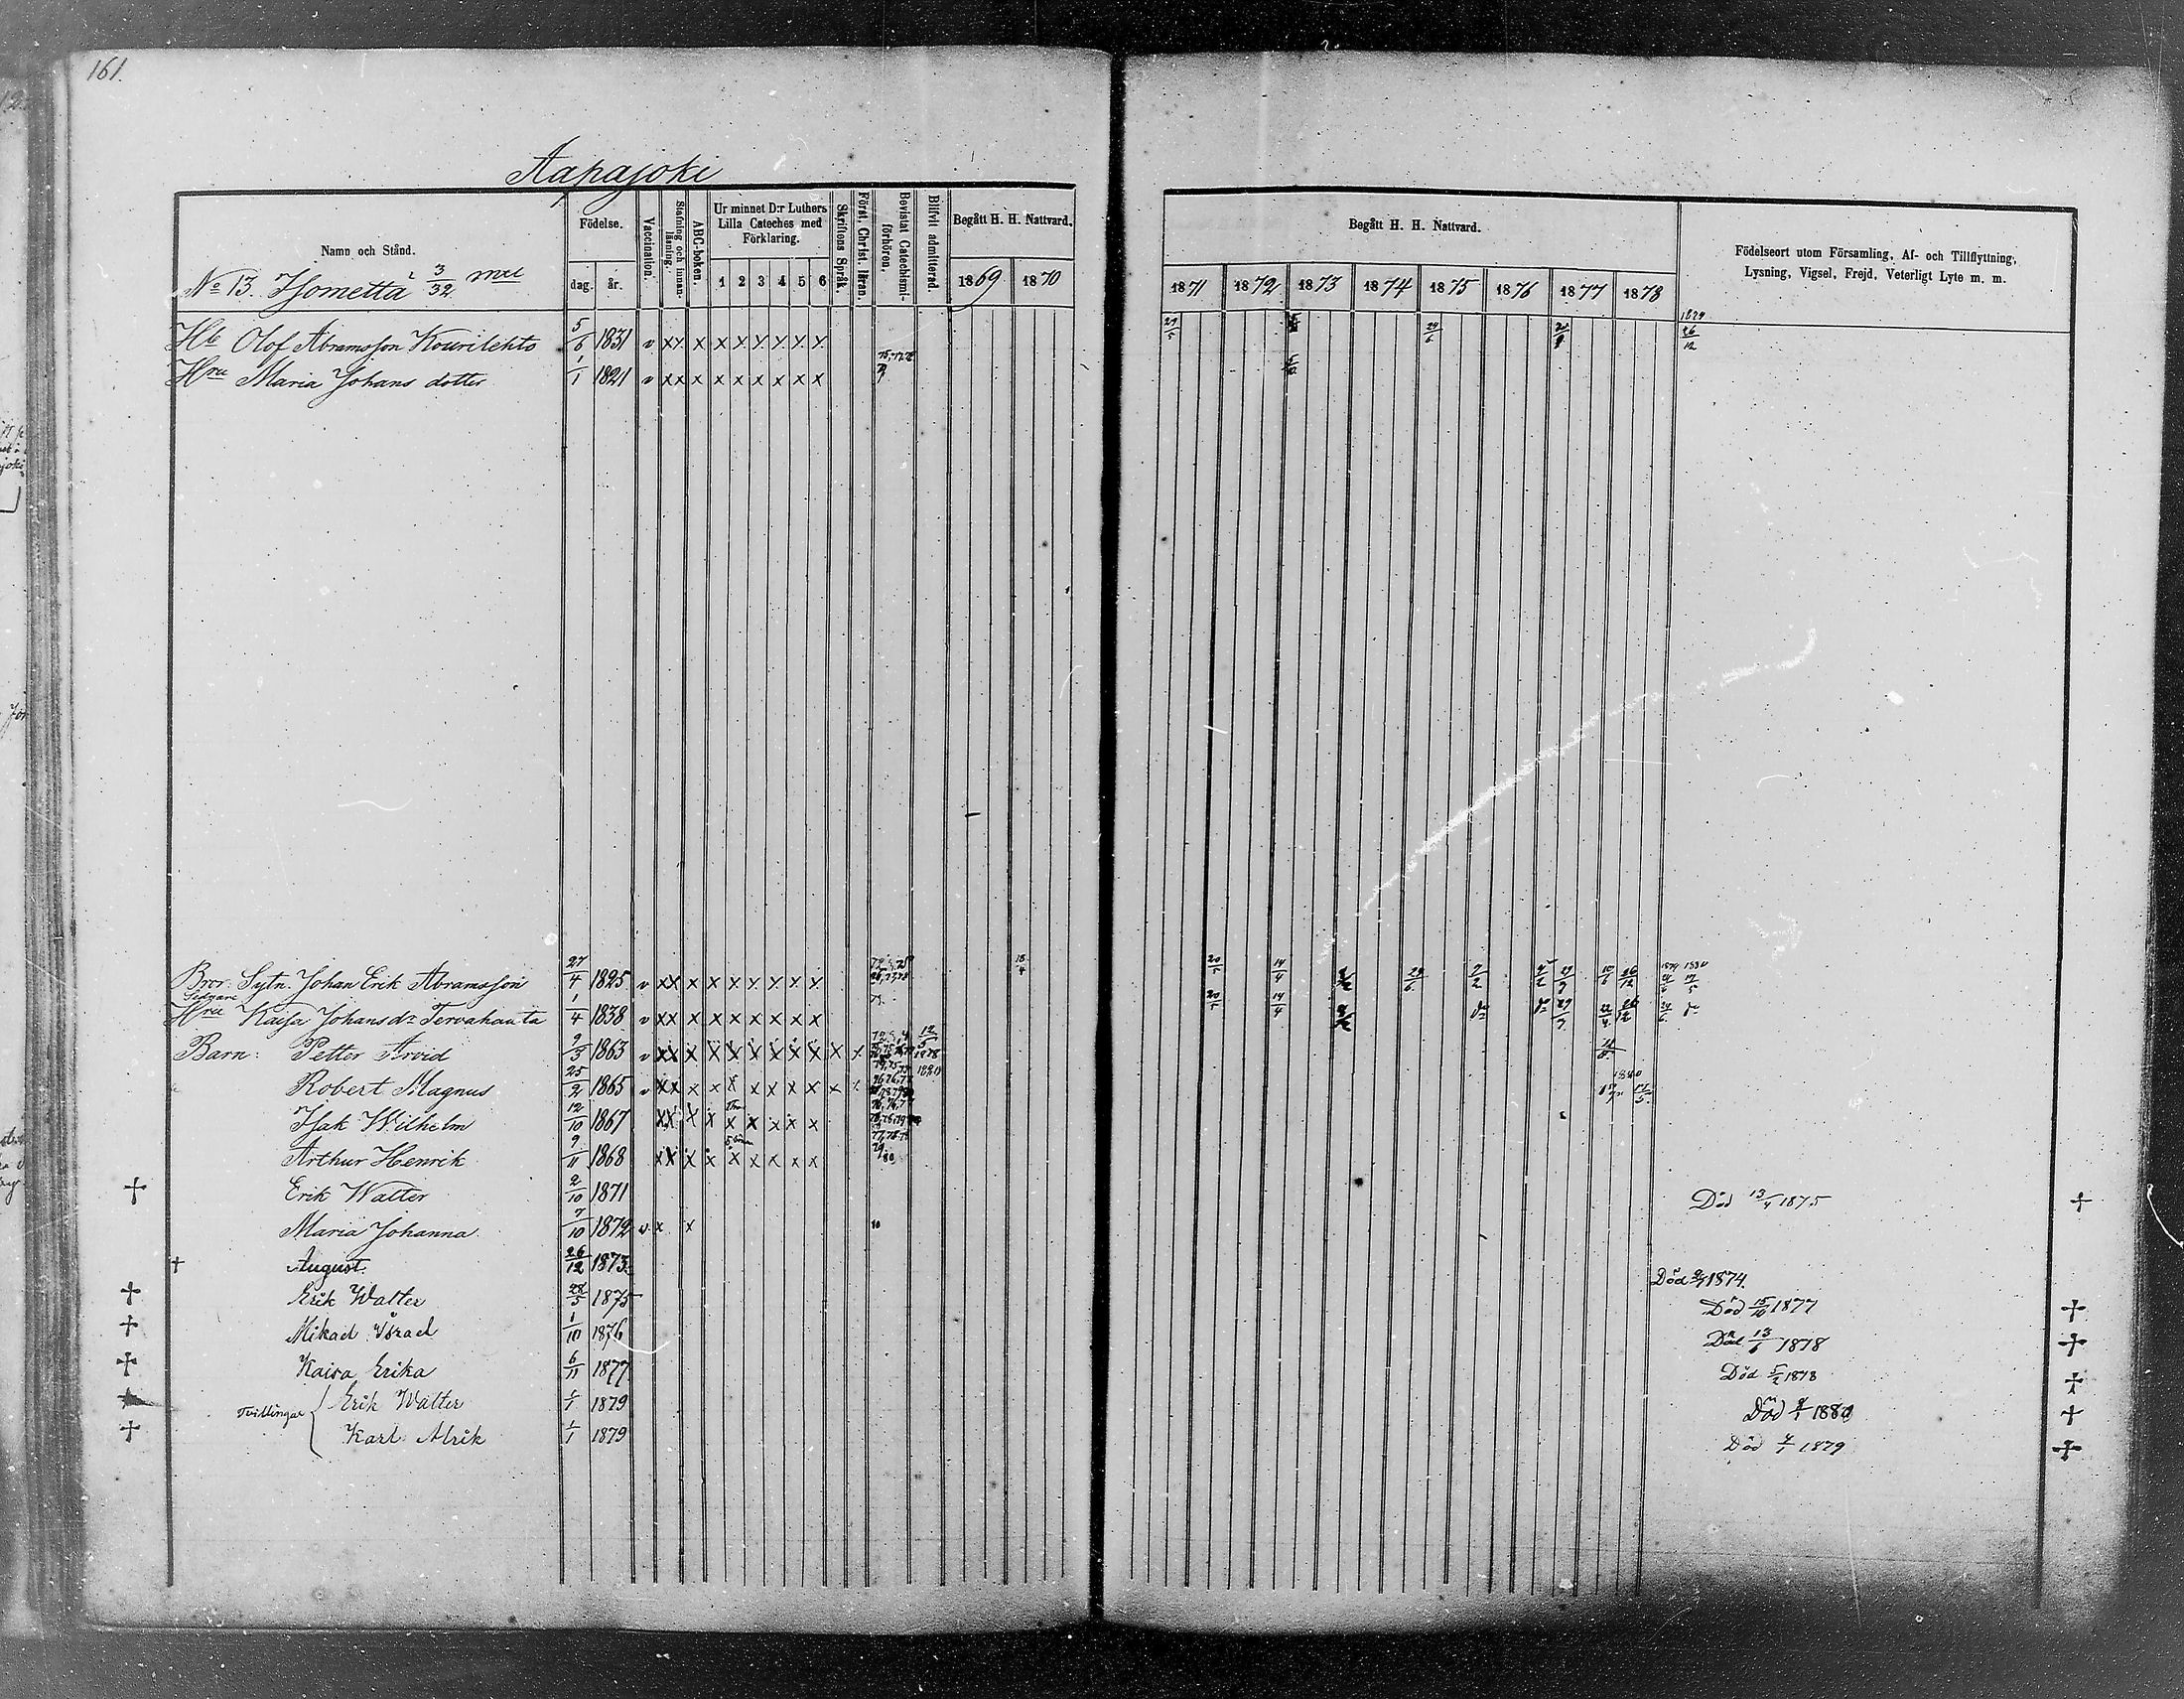 161.
Aapajoki
Namn och Stånd.
No 13. Isometta i 3/32 mtl
Födelse.
dag.
år.
Vaccination.
Stafning och innanläsning.
ABC-boken.
Ur minnet D:r Luthers Lilla Cateches med Förklaring.
1 2 3 4 5 6
Skriftens Språk.
Först. Christ. läran.
Bevistat Catechismiförhören.
Blifvit admitterad.
Begått H. H. Nattvard.
1869 1870
Begått H. H. Nattvard.
1871 1872 1873 1874 1875 1876 1877 1878
Födelseort utom Församling, Af- och Tillflyttning,
Lysning, Vigsel, Frejd, Veterligt Lyte m. m.
1879
Hb Olof Abramsson Kourilehto 5/6 1831 v x x x x x x x x x 26/12
Hru Maria Johans dotter 1/1 1821 v x x x x x x x x x
Bror. Sytn. Johan Erik Abramsson 27/4 1825 v x x x x x x x x x 18/4 20/5 14/4
Hru Kaisa Johansdr Tervahauta 1/4 1838 v x x x x x x x x x 20/5 14/4
Barn: Petter Arvid 9/3 1863 v x x x x x x x x x x 12/5 1878
Robert Magnus 25/2 1865 v x x x x x x x x x x 1880
Isak Wilhelm 12/10 1867 x x x x x x x x x
Arthur Henrik 9/11 1868 x x x x x x x x x
† Erik Walter 2/10 1871 Död 13/4 1875 †
Maria Johanna 7/10 1872 v x x
† August 26/12 1873 Död 1874.
† Erik Walter 28/5 1875 Död 15/10 1877 †
† Mikael Israel 1/10 1876 Död 13/6 1878 †
† Kaisa Erika 6/11 1877 Död 5/2 1878 †
Tvillingar
Erik Walter 1/1 1879 Död 1880 †
† Karl Alrik 1/1 1879 Död 1879 †